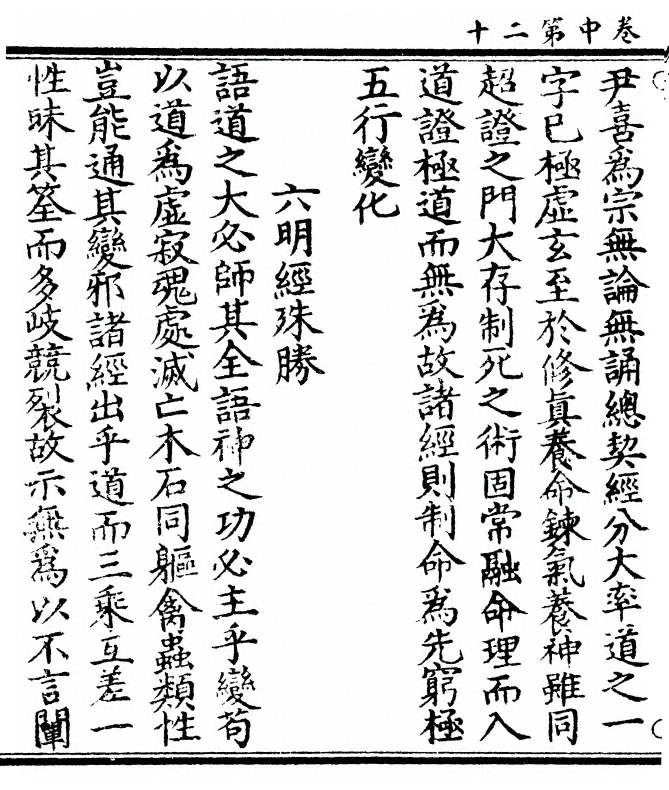 卷中第二十
尹喜爲宗無論無誦總契經分大率道之一
字已極虛玄至於修眞養命鍊氣養神雖同
超證之門大存制死之術固常融命理而入
道證極道而無爲故諸經則制命爲先窮極
五行變化
六明經殊勝
語道之大必師其全語神之功必主乎變苟
以道爲虛寂魂處滅亡木石同軀禽蟲類性
豈能通其變邪諸經出乎道而三乘互差一
性昧其筌而多岐競裂故示無爲以不言闡